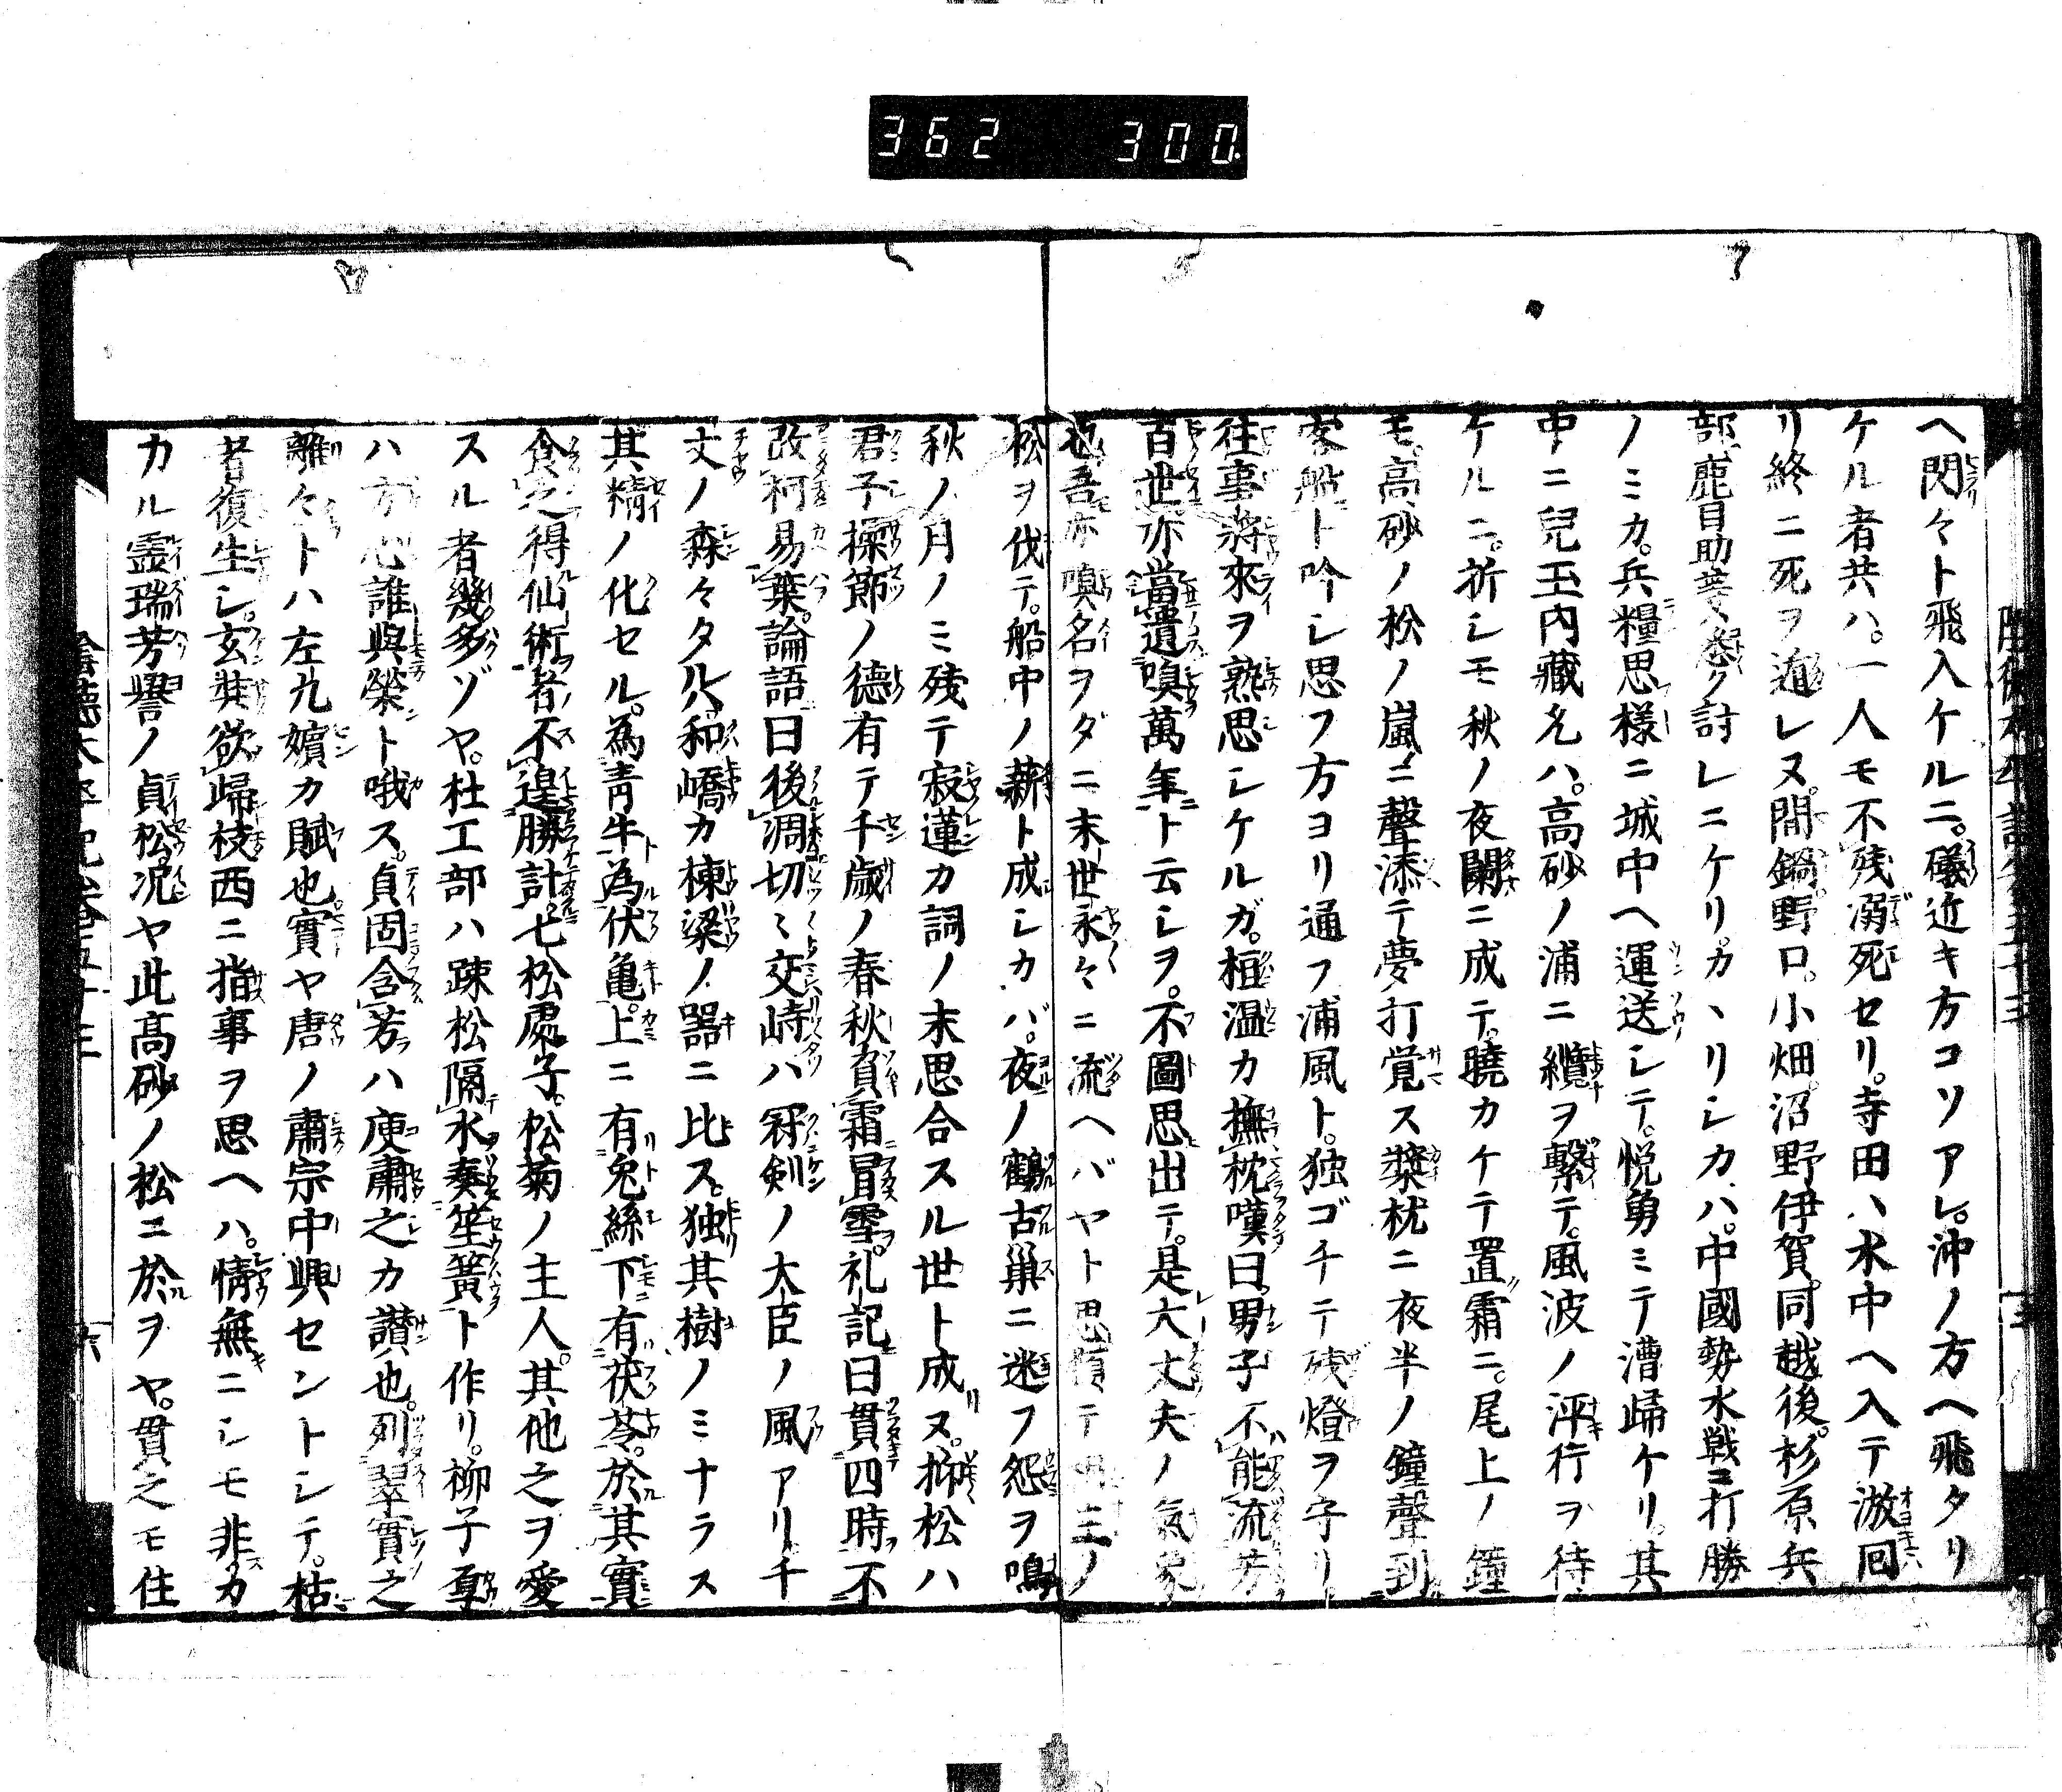 362 300.
ヘ閃々ト飛入ケルニ。礒近キ方コソアレ。沖ノ方ヘ飛タリ
ケル者共ハ。一人モ不残溺死セリ。寺田ハ水中ヘ入テ游囘
リ終ニ死ヲ遁レヌ。間鍋野口。小畑沼野伊賀。同越後。杉原兵
部。鹿目助ハ悉ク討レニケリ。カヽリシカハ。中國勢水戦ニ打勝
ノミカ。兵糧思様ニ城中ヘ運送シテ。悦勇ミテ漕歸ケリ。其
中ニ兒玉内藏允ハ。高砂ノ浦ニ纜ヲ繋テ。風波ノ泙行ヲ待
ケルニ。折シモ秋ノ夜闌ニ成テ。曉カケテ置霜ニ。尾上ノ鐘
モ。高砂ノ松ノ嵐ニ聲添テ夢打覚ス檠枕ニ夜半ノ鐘聲到
客船ト吟シ思フ方ヨリ通フ浦風ト。独ゴチテ残燈ヲ守リ
往事將來ヲ熟思シケルガ。桓温カ撫枕嘆曰。男子不能流芳
百世。亦當遺嗅萬年ト云シヲ。不圖思出テ。是大丈夫ノ氣象
也吾亦嗅名ヲダニ末世永々ニ流ヘバヤト思テノ
松ヲ伐テ。船中ノ薪ト成シカバ。夜ノ鶴古巣ニ迷フ怨ヲ鳴
秋ノ月ノミ残テ寂蓮カ詞ノ末思合スル世ト成ヌ。抑松ハ
君子操節ノ徳有テ千歳ノ春秋負霜冒雪。礼記曰貫四時不
改柯易葉。論語曰後凋切〻交峙ハ冠剣ノ大臣ノ風アリ。千
丈ノ森々タルハ和嶠カ棟梁ノ器ニ比ス。独其樹ノミナラス
其精ノ化セル。為青牛為伏亀。上ニ有兎絲下有茯苓。於其實
食之得仙術者不遑勝計。七松處子。松菊ノ主人。其他之ヲ愛
スル者幾多ゾヤ。杜工部ハ疎松隔水奏笙簧ト作リ。柳子厚
ハ方心誰與榮ト哦ス。貞固含芳ハ庾肅之カ讃也。列翠實之
離々トハ左九嬪カ賦也實ヤ唐ノ肅宗中興セントシテ。枯
者復生シ。玄奘欲歸枝西ニ指事ヲ思ヘハ。情無キニシモ非カ
カル霊瑞芳譽ノ貞松。况ヤ此髙砂ノ松ニ於ヲヤ。貫之モ住